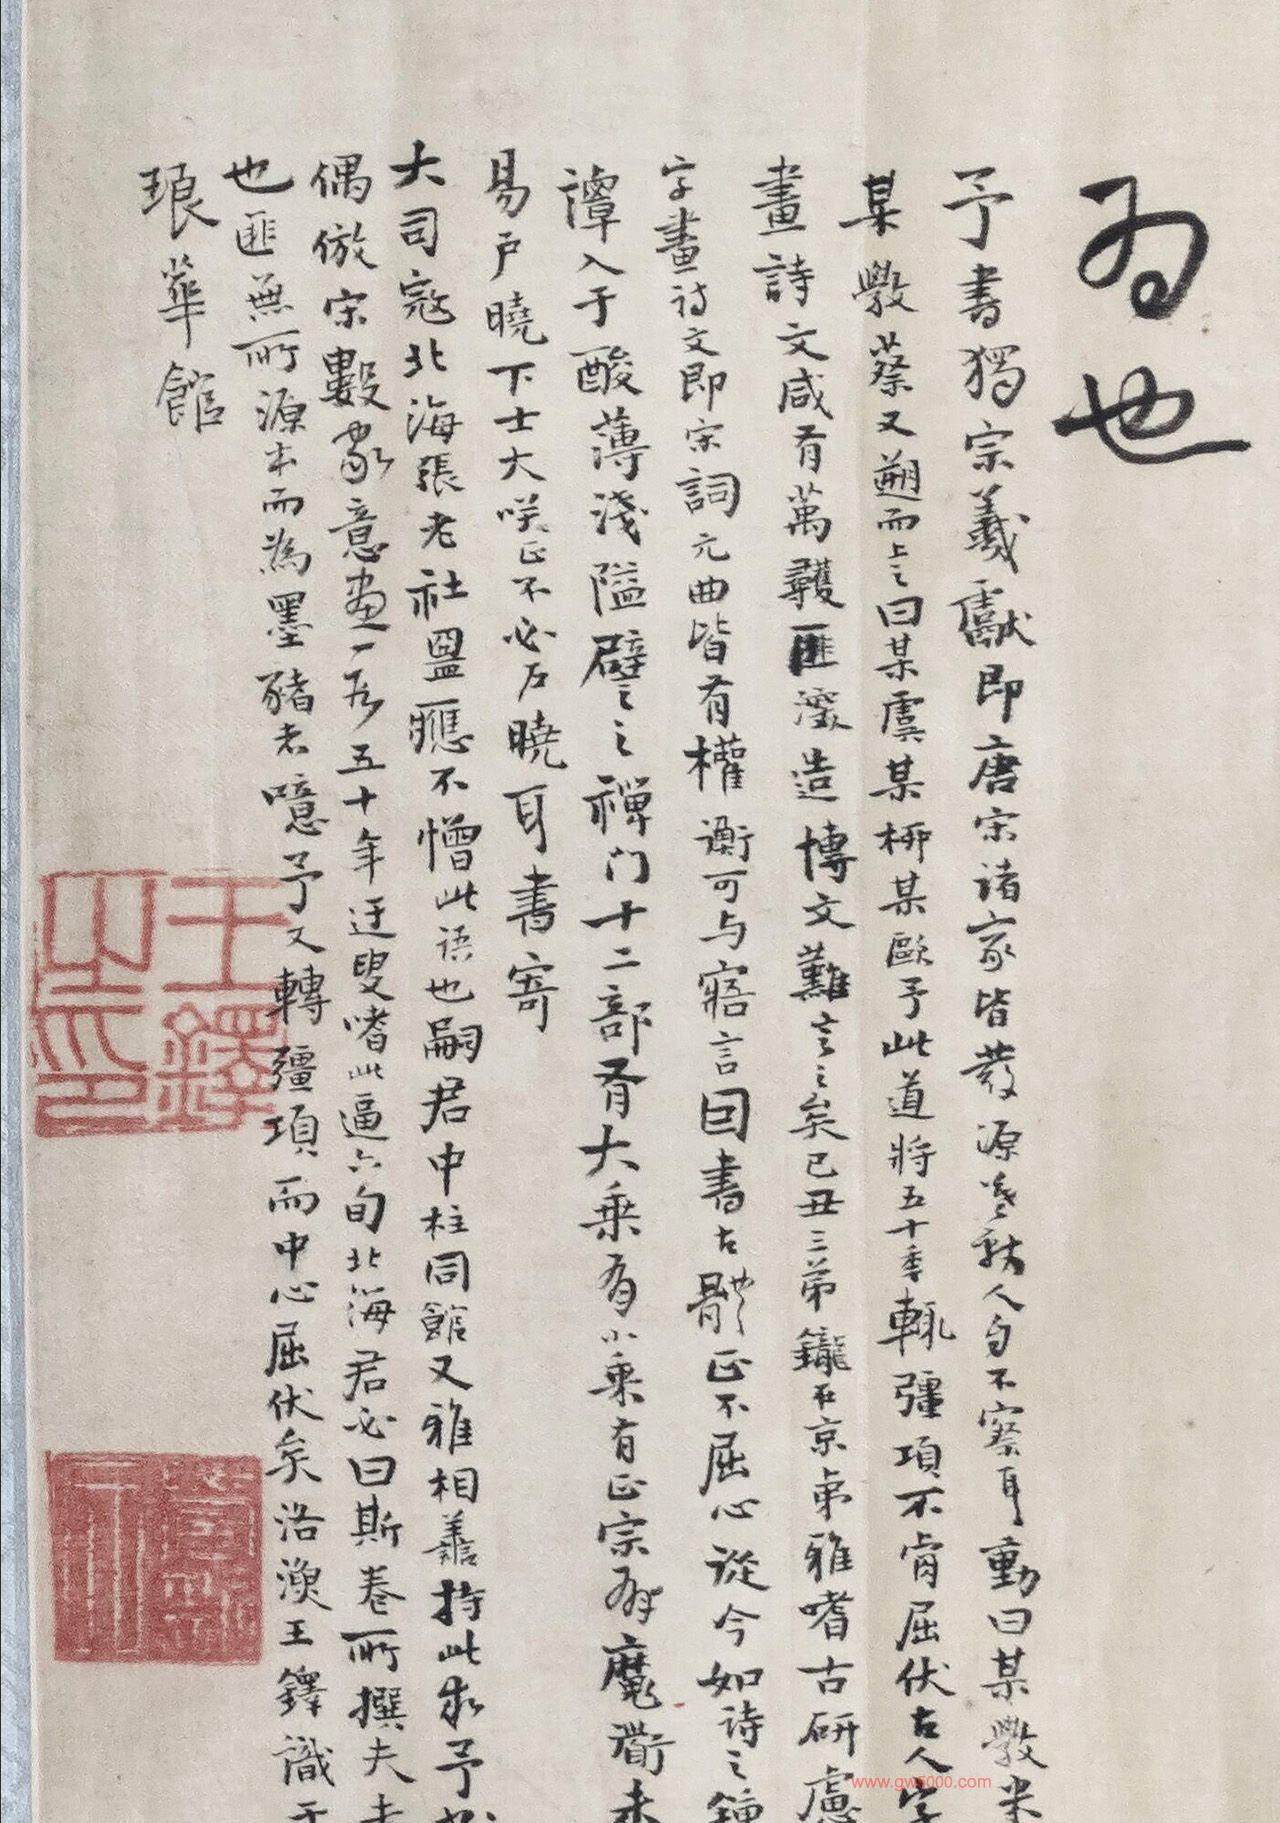 為也
予書獨宗羲獻即唐宋諸家皆發源羲獻人自不察耳動曰某斆米
某斆蔡又遡而上之曰某虞某柳某歐予此道將五十季輒彊項不肯屈伏古人字
畫詩文咸有萬彟匪濫造博文難言之矣己丑三弟鑨在京弟雅嗜古研慮
字畫詩文即宋詞元曲皆有權衡可与寤言曰書古體也正不屈心從今如詩之鍾
譚入于酸薄淺隘譬之禪門十二部有大乘有小乘有正宗有魔衜未
易户曉下士大咲正不必户曉耳書寄
大司寇北海張老社盟應不憎此語也嗣君中柱同館又雅相善持此求予書
偶倣宋數家意畫一形五十年迂叟嗜此逼六旬北海君必曰斯卷所撰夫
也匪無所源本而為墨豬者噫予又轉彊項而中心屈伏矣洛渙王鐸識于
琅華館
王鐸之印
www.gw5000.com